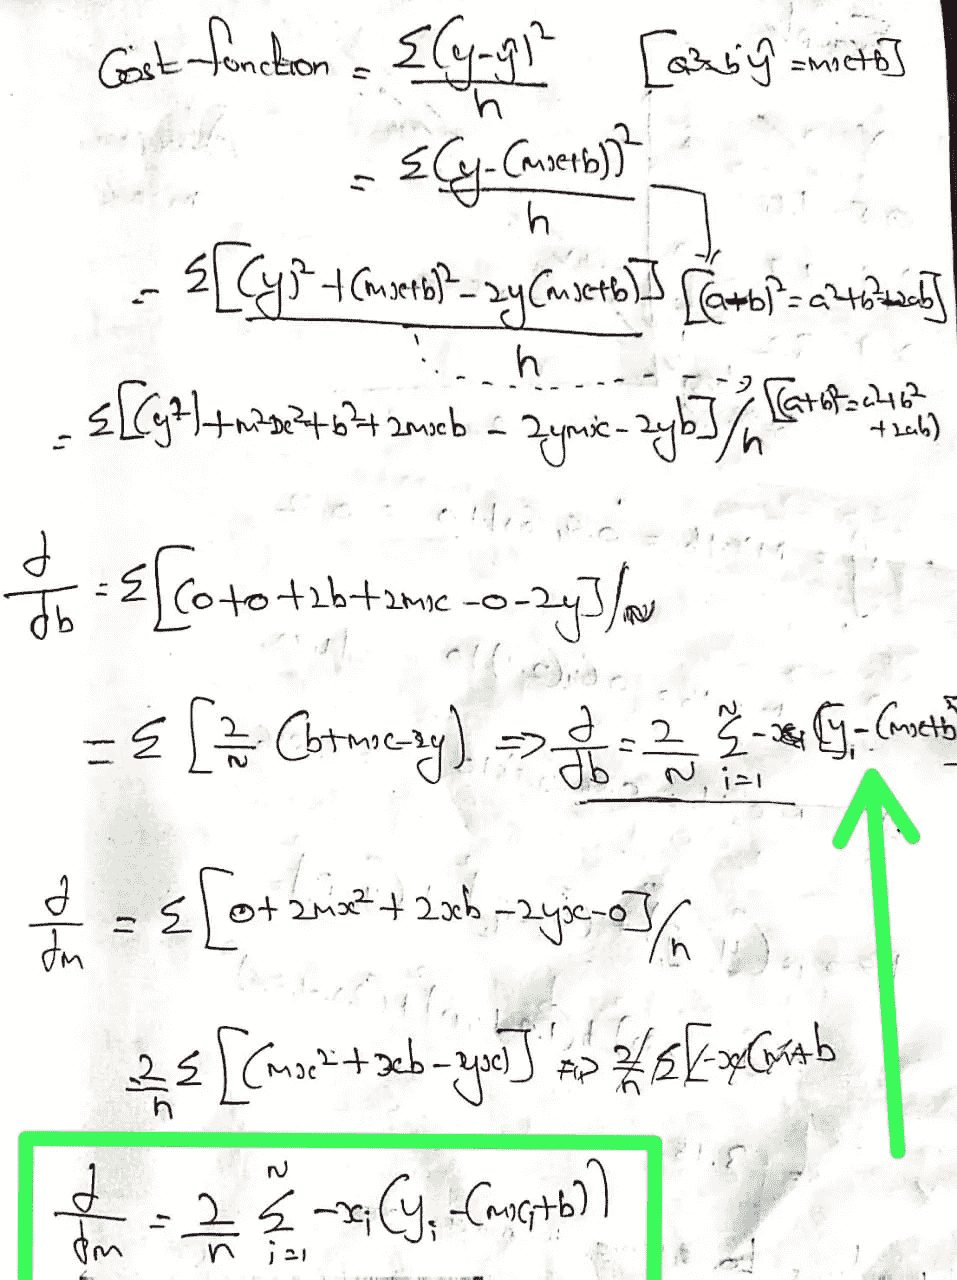 Cost function = Σ(y-ŷ)²/n [ŷ = mx+b]
= Σ(y-(mx+b))²/n
= Σ[(y)²+(mx+b)²-2y(mx+b)]/n [(a+b)²=a²+b²+2ab]
= Σ[(y²)+m²x²+b²+2mxb - 2ymx - 2yb]/n [(a+b)²=a²+b²+2ab)
d/db = Σ[(0+0+2b+2mx-0-2y]/n
= Σ[2/N (b+mx-y) ⇒ d/db = 2/N Σ i=1 N -(yi-(mx+b)
d/dm = Σ[0+2mx²+2xb-2yx-0]/n
2/n Σ[(mx²+xb-yx)] ⇒ 2/n Σ[-x(m+b
d/dm = 2/n Σ i=1 N -xi(yi-(mxi+b))